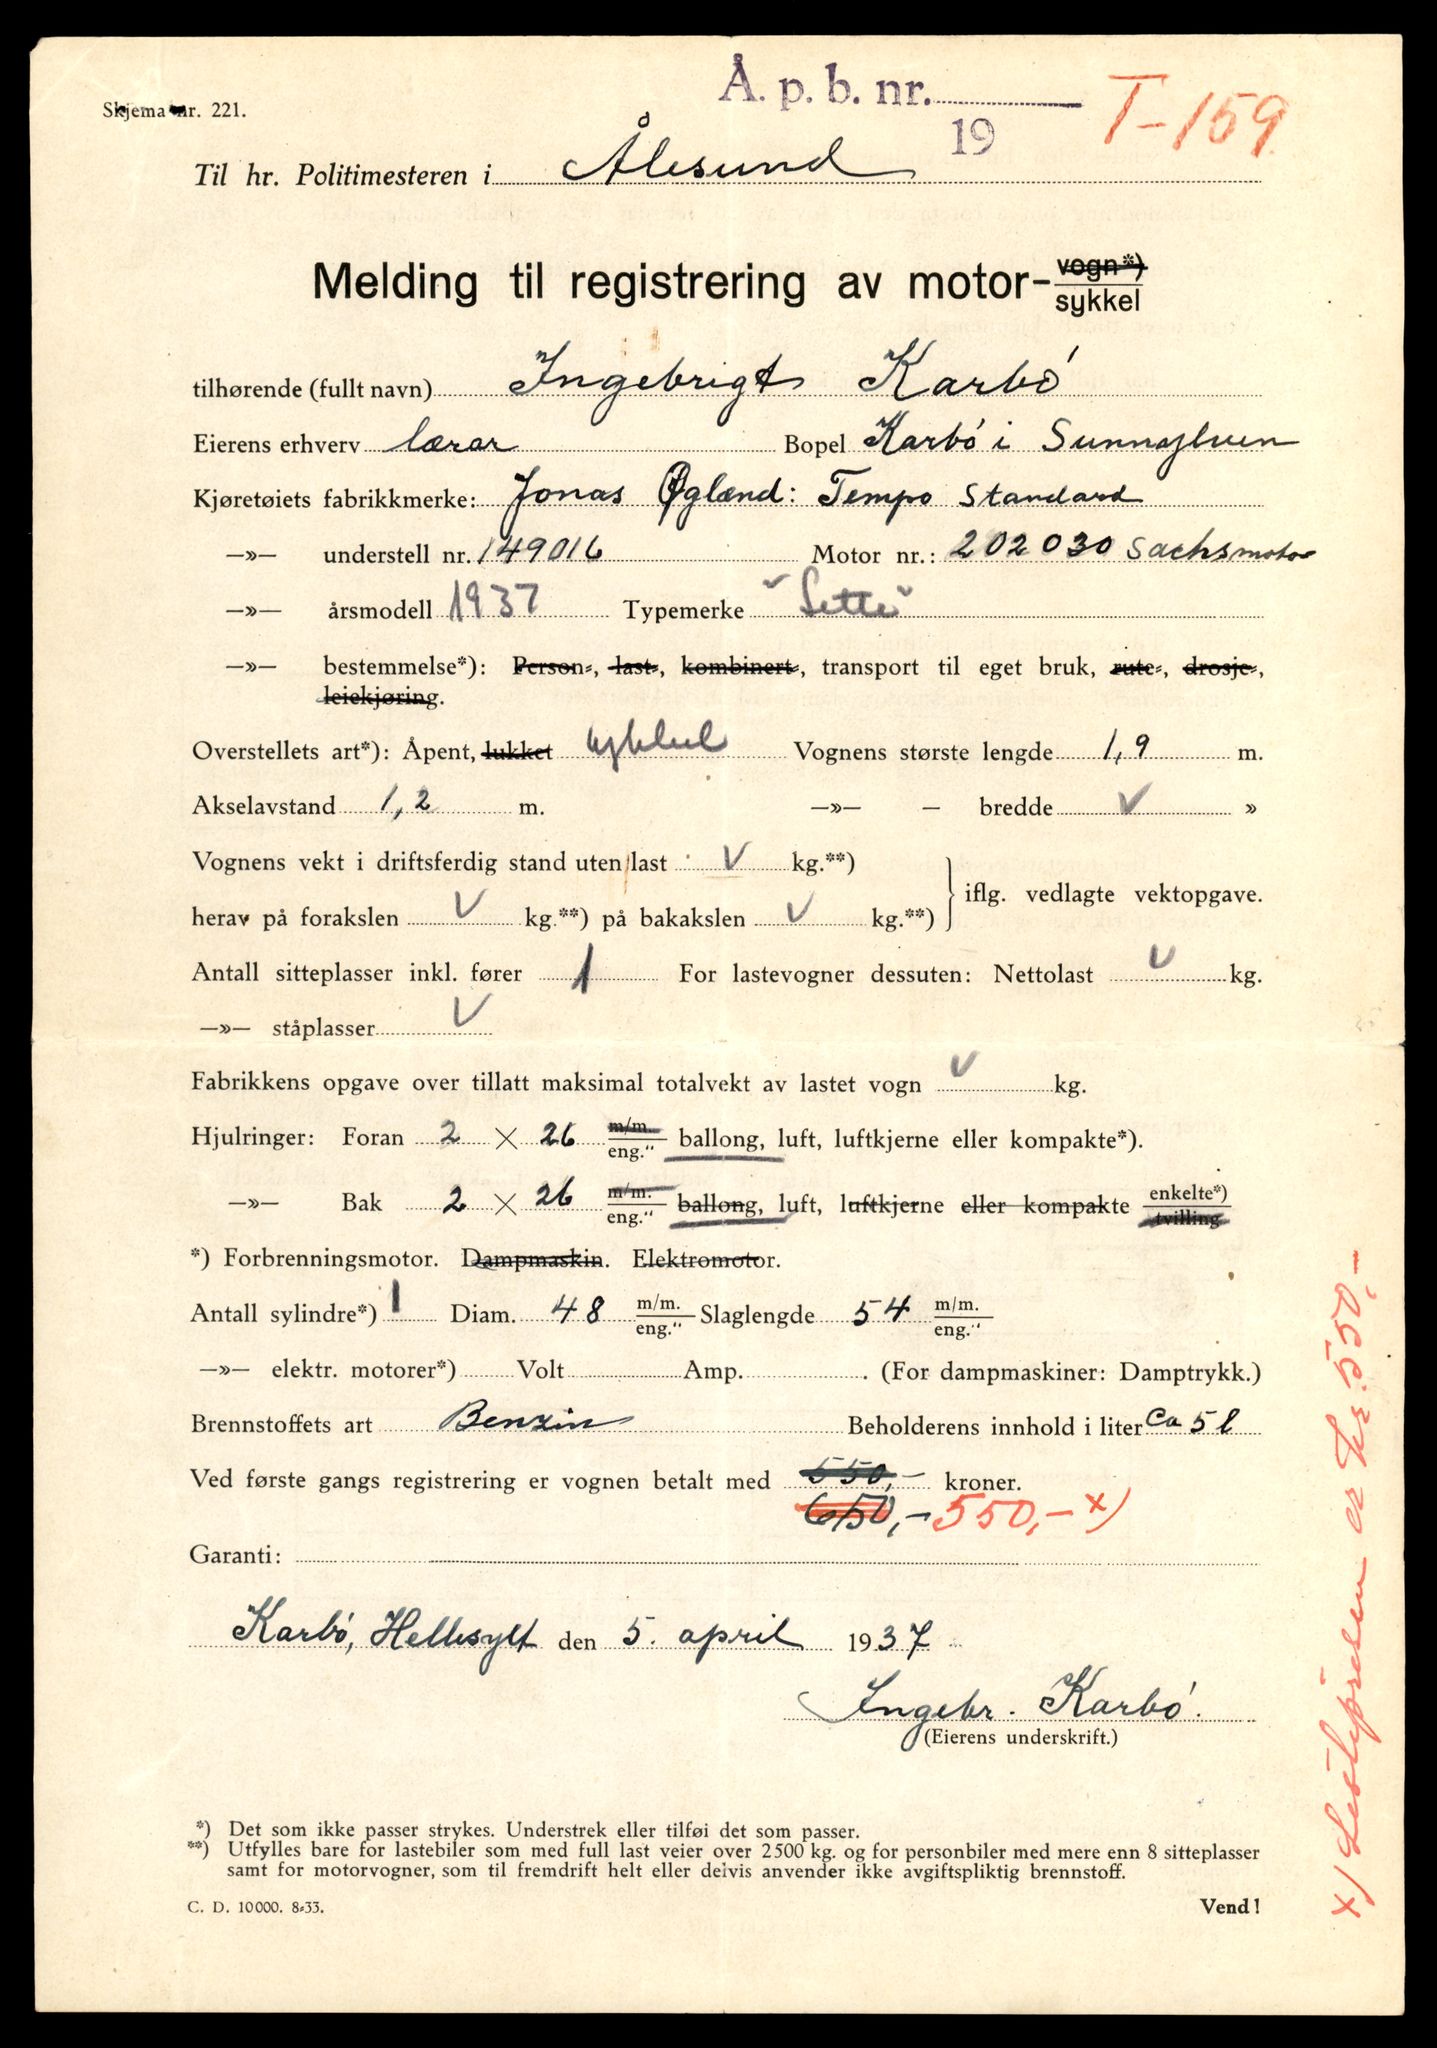 Skjema nr. 221.
Å. p. b. nr.
19
T-159
Til hr. Politimesteren i Ålesund
Melding til registrering av motor- vogn*) sykkel
tilhørende (fullt navn) Ingebrigt Karbó
Eierens erhverv lærar Bopel Karbó i Sunnylven
Kjøretøiets fabrikkmerke: Jonas Øglænd: Tempo Standard
—»— understell nr. 149016 Motor nr.: 202030 Sachsmotor
—»— årsmodell 1937 Typemerke "Lette"
—»— bestemmelse*): Person-, last-, kombinert-, transport til eget bruk, rute-, drosje-,
leiekjøring.
Overstellets art*): Åpent, lukket sykkel Vognens største lengde 1,9 m.
Akselavstand 1,2 m. —»— – bredde »
Vognens vekt i driftsferdig stand uten last kg.**)
herav på forakslen kg.**) på bakakslen kg.**) iflg. vedlagte vektopgave.
Antall sitteplasser inkl. fører 1 For lastevogner dessuten: Nettolast kg.
—»— ståplasser
Fabrikkens opgave over tillatt maksimal totalvekt av lastet vogn kg.
Hjulringer: Foran 2 × 26 m/m. eng." ballong, luft, luftkjerne eller kompakte*).
—»— Bak 2 × 26 m/m. eng." ballong, luft, luftkjerne eller kompakte enkelte*) tvilling
*) Forbrenningsmotor. Dampmaskin. Elektromotor.
Antall sylindre*) 1 Diam. 48 m/m. eng." Slaglengde 54 m/m. eng."
—»— elektr. motorer*) Volt Amp. . (For dampmaskiner: Damptrykk.)
Brennstoffets art Benzin Beholderens innhold i liter ca 5 l
Ved første gangs registrering er vognen betalt med 550,- kroner.
650,- 550,- x)
Garanti:
Karbó, Hellesylt den 5. april 1937
Ingebr. Karbó.
(Eierens underskrift.)
*) Det som ikke passer strykes. Understrek eller tilføi det som passer.
**) Utfylles bare for lastebiler som med full last veier over 2500 kg. og for personbiler med mere enn 8 sitteplasser
samt for motorvogner, som til fremdrift helt eller delvis anvender ikke avgiftspliktig brennstoff.
C. D. 10000. 8-33.
Vend!
x) Listeprisen er kr. 550,-